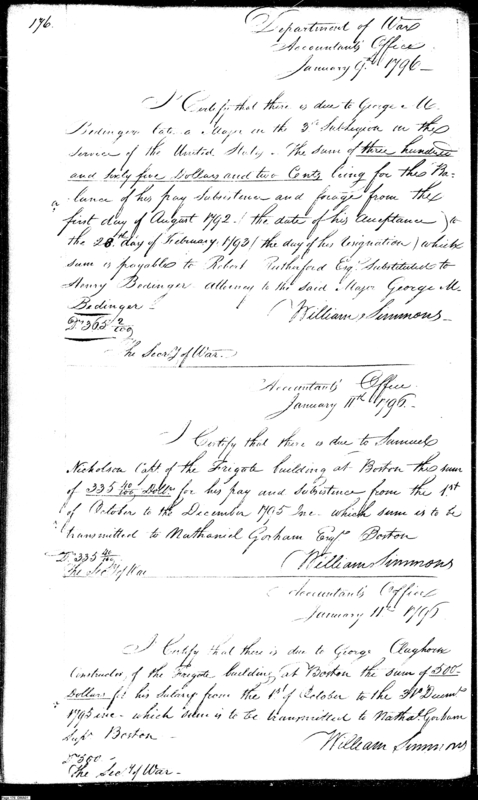 176.
Department of War
Accountants Office
January 9th 1796-
I Certify that there is due to George M.
Bedinger late a Major in the 3d SubLegion in the
Service of the United States. The sum of three hundred
and Sixty five Dollars and two Cents being for the Ba-
lance of his pay Subsistence and forage from the
first day of August 1792 ( the date of his acceptance ) to
the 28th day of February 1793 ( the day of his resignation ) which
sum is payable to Robert Rutherford Esqr. Substituted to
Henry Bedinger attorney to the said Major George M.
Bedinger -
William Simmons-
Ds 365 2/100
The Secy. of War.
Accountants Office
January 11th 1796.
I Certify that there is due to Samuel
Nicholson Capt. of the Frigate building at Boston the sum
of 335 40/100 Dollrs for his pay and Subsistence from the 1st
of October to the December 1795 Inc. which sum is to be
transmitted to Nathaniel Gorham Esqr. Boston
William Simmons
Ds. 335 40/100
The Secy. of War
Accountants Office
January 11th 1796
I Certify that there is due to George Claghorn
Constructor, of the Frigate building at Boston the sum of 500
Dollars for his Salary from the 1st of October to the 31st Decemr
1795 inc - which sum is to be transmitted to Nathal. Gorham
Supt. Boston -
William Simmons
Ds 500 -
The Secy. of War -